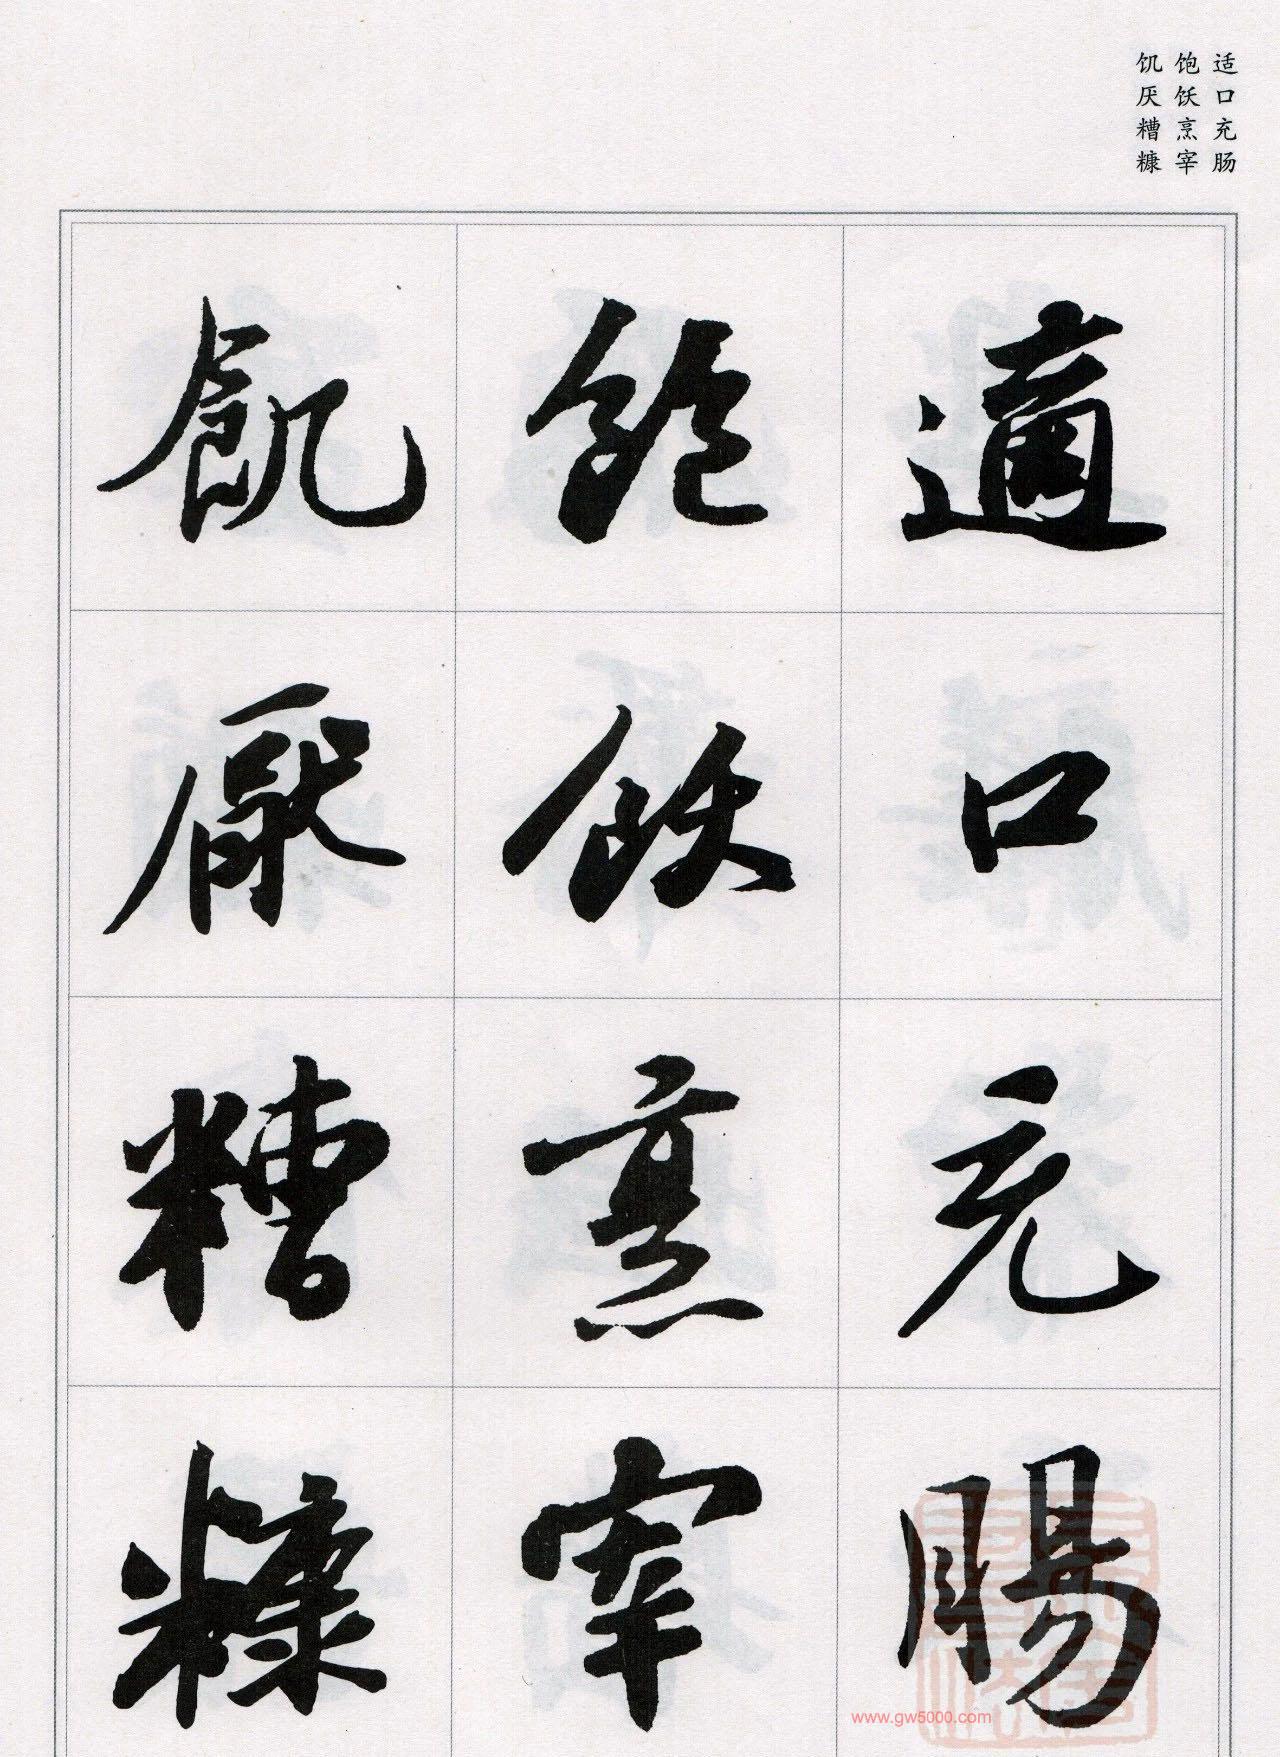 适口充肠
饱饫烹宰
饥厌糟糠
適口充腸
飽飫烹宰
飢厭糟糠
www.gw5000.com